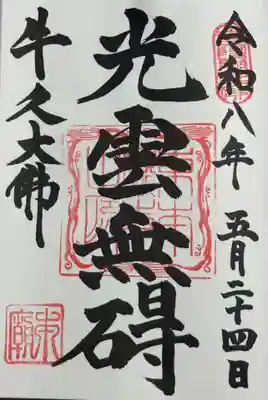 令和八年 五月二十四日
光雲無碍
牛久大佛